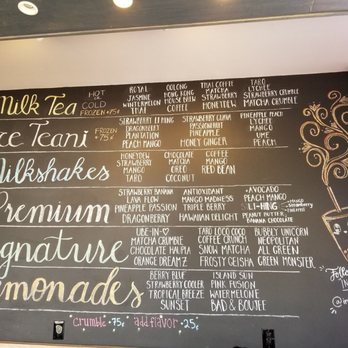 Milk Tea HOT or COLD FROZEN +75¢
ROYAL OOLONG THAI COFFEE TARO
JASMINE HONG KONG MATCHA LYCHEE
WINTERMELON HOUSE BREW STRAWBERRY STRAWBERRY CRUMBLE
THAI COFFEE HONEYDEW MATCHA CRUMBLE
ce Teani FROZEN +75¢
STRAWBERRY LEMONG STRAWBERRY GUAVA PINEAPPLE PEACH
DRAGONBERRY PASSIONFRUIT LYCHEE
PLANTATION PINEAPPLE MANGO UME
PEACH MANGO HONEY GINGER PEACH
Milkshakes
HONEYDEW CHOCOLATE COFFEE
STRAWBERRY MATCHA MANGO
MANGO OREO RED BEAN
TARO COCONUT
Premium
STRAWBERRY BANANA ANTIOXIDANT AVOCADO
LAVA FLOW MANGO MADNESS PEACH MANGO
PINEAPPLE PASSION TRIPLE BERRY LI-HING
DRAGONBERRY HAWAIIAN DELIGHT PEANUT BUTTER
BANANA CHOCOLATE
ignature
UBE-IN-U TARO LOCO COCO BUBBLY UNICORN
MATCHA CRUMBLE COFFEE CRUNCH NEOPOLITAN
CHOCOLATE HAUPIA SNOW MATCHA ALL GREEN
ORANGE DREAMZ FROSTY GEISHA GREEN MONSTER
emonades
BERRY BLUE ISLAND SUN
STRAWBERRY COOLER PINK FUSION
TROPICAL BREEZE WATERMELONE
SUNSET BAD & BOUJEE
crumble +75¢ add flavor +25¢
Follo
IN